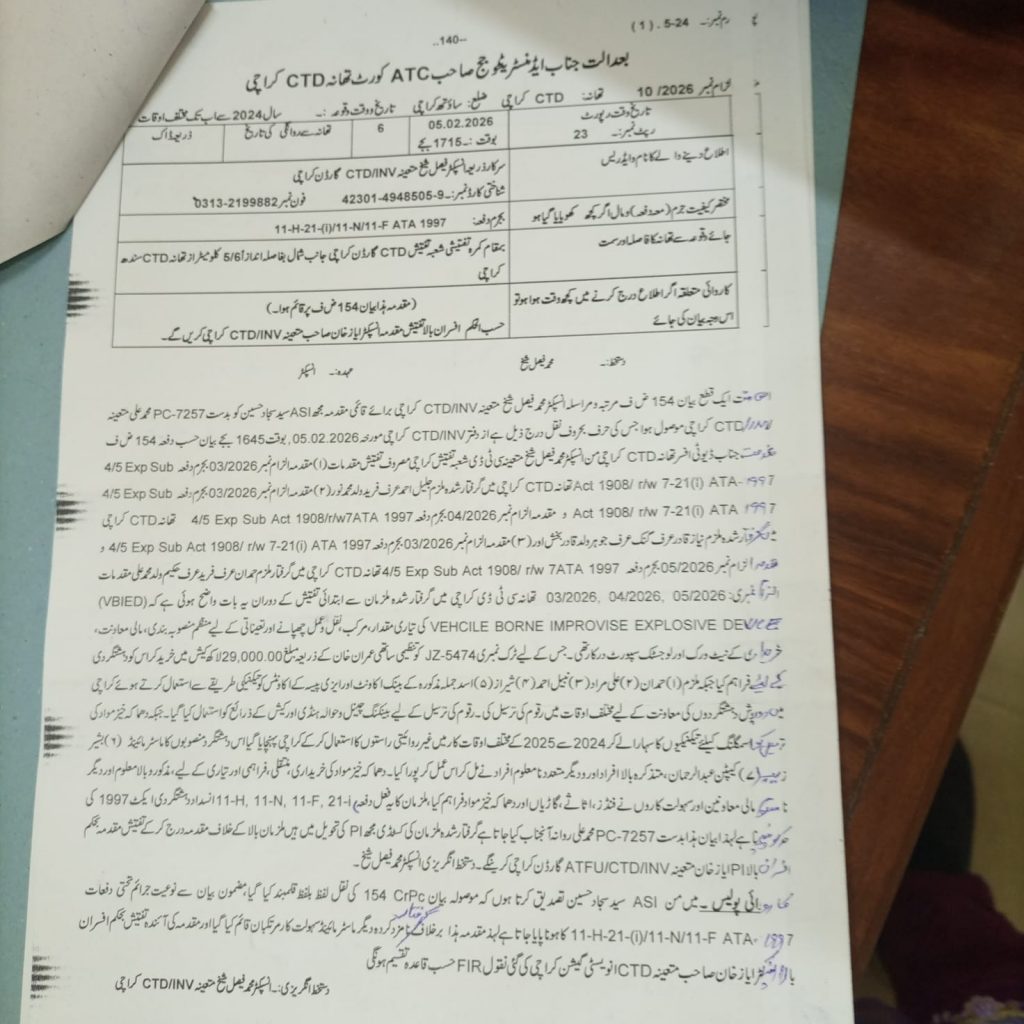 فارم نمبر:۔ 24-5 .(1)
--140--
بعدالت جناب ایڈمنسٹریٹو جج صاحب ATC کورٹ تھانہ CTD کراچی
الزام نمبر 10/2026 تھانہ: CTD کراچی ضلع: ساؤتھ کراچی تاریخ و وقت وقوعہ :۔ سال 2024 سے اب تک مختلف اوقات
تاریخ وقت رپورٹ
رپٹ نمبر:۔ 23
05.02.2026
بوقت :۔ 1715 بجے
6
تھانہ سے روانگی کی تاریخ
ذریعہ ڈاک
اطلاع دینے والے کا نام و ایڈریس
سرکار ذریعہ انسپکٹر فیصل شیخ متعینہ CTD/INV گارڈن کراچی
شناختی کارڈ نمبر:۔ 42301-4948505-9 فون نمبر 0313-2199882
مختصر کیفیت جرم (معہ دفعہ) و مال اگر کچھ کھویا گیا ہو
بجرم دفعہ: 11-H-21-(i)/11-N/11-F ATA 1997
جائے وقوعہ سے تھانہ کا فاصلہ اور سمت
بمقام کمرہ تفتیشی شعبہ تفتیش CTD گارڈن کراچی جانب شمال بفاصلہ اندازاً 5/6 کلومیٹر از تھانہ CTD سندھ
کراچی
کاروائی متعلقہ اگر اطلاع درج کرنے میں کچھ وقت ہوا ہو تو
اس وجہ بیان کی جائے
(مقدمہ ہذا بیان 154 ض ف پر قائم ہوا۔)
حسب الحکم افسران بالا تفتیش مقدمہ انسپکٹر ایاز خان صاحب متعینہ CTD/INV کراچی کریں گے۔
دستخط:۔ محمد فیصل شیخ عہدہ:۔ انسپکٹر
ایک قطع بیان 154 ض ف مرتبہ و مراسلہ انسپکٹر محمد فیصل شیخ متعینہ CTD/INV کراچی برائے قائمی مقدمہ مجھ ASI سید سجاد حسین کو بدست PC-7257 محمد علی متعینہ
CTD کراچی موصول ہوا جس کی حرف بحروف نقل درج ذیل ہے از دفتر CTD/INV کراچی مورخہ 05.02.2026, بوقت 1645 بجے بیان حسب دفعہ 154 ض ف
بخدمت جناب ڈیوٹی افسر تھانہ CTD کراچی من انسپکٹر محمد فیصل شیخ متعینہ سی ٹی ڈی شعبہ تفتیش کراچی مصروف تفتیش مقدمات (۱) مقدمہ الزام نمبر 03/2026 بجرم دفعہ 4/5 Exp Sub
Act 1908/ r/w 7-21(i) ATA-1997 تھانہ CTD کراچی میں گرفتار شدہ ملزم جلیل احمد عرف فرید ولد محمد نور (۲) مقدمہ الزام نمبر 03/2026 بجرم دفعہ 4/5 Exp Sub
Act 1908/ r/w 7-21(i) ATA 1997 و مقدمہ الزام نمبر 04/2026 بجرم دفعہ 4/5 Exp Sub Act 1908/r/w7ATA 1997 تھانہ CTD کراچی
میں گرفتار شدہ ملزم نیاز قادر عرف کنگ عرف جوہر ولد قادر بخش اور (۳) مقدمہ الزام نمبر 03/2026 بجرم دفعہ 4/5 Exp Sub Act 1908/ r/w 7-21(i) ATA 1997 و
مقدمہ الزام نمبر 05/2026 بجرم دفعہ 4/5 Exp Sub Act 1908/ r/w 7ATA 1997 تھانہ CTD کراچی میں گرفتار ملزم حمدان عرف فرید عرف حکیم ولد محمد علی مقدمات
الزام نمبری: 03/2026, 04/2026, 05/2026 تھانہ سی ٹی ڈی کراچی میں گرفتار شدہ ملزمان سے ابتدائی تفتیش کے دوران یہ بات واضح ہوئی ہے کہ (VBIED)
VEHCILE BORNE IMPROVISE EXPLOSIVE DEVICE کی تیاری مقدار، مرکب، نقل و حمل چھپانے اور تعیناتی کے لیے منظم منصوبہ بندی، مالی معاونت،
خریداری کے نیٹ ورک اور لوجسٹک سپورٹ درکار تھی۔ جس کے لیے ٹرک نمبری JZ-5474 کو تنظیمی ساتھی عمران خان کے ذریعہ مبلغ 29,000.00 لاکھ کیش میں خرید کر اس کو دہشتگردی
کے لیے فراہم کیا جبکہ ملزم (۱) حمدان (۲) علی مراد (۳) نبیل احمد (۴) شیراز (۵) اسد جملہ مذکورہ کے بینک اکاونٹ اور ایزی پیسہ کے اکاونٹس کو تکنیکی طریقے سے استعمال کرتے ہوئے کراچی
میں روپوش دہشتگردوں کی معاونت کے لیے مختلف اوقات میں رقوم کی ترسیل کی۔ رقوم کی ترسیل کے لیے بینکنگ چینل و حوالہ ہنڈی اور کیش کے ذرائع کو استعمال کیا گیا۔ جبکہ دھماکہ خیز مواد کی
ترسیل و اسمگلنگ کیلئے تکنیکیوں کا سہارا لے کر 2024 سے 2025 کے مختلف اوقات کار میں غیر روایتی راستوں کا استعمال کر کے کراچی پہنچایا گیا اس دہشتگرد منصوبوں کا ماسٹر مائینڈ (۶) بشیر
زیب (۷) کیپٹن عبدالرحمان، متذکرہ بالا افراد اور دیگر متعدد نا معلوم افراد نے مل کر اس عمل کر پورا کیا۔ دھماکہ خیز مواد کی خریداری، منتقلی، فراہمی اور تیاری کے لیے، مذکورہ بالا معلوم اور دیگر
مالی معاونین اور سہولت کاروں نے فنڈز، اثاثے، گاڑیاں اور دھماکہ خیز مواد فراہم کیا، ملزمان کا یہ فعل دفعہ 11-H, 11-N, 11-F, 21-i انسداد دہشتگردی ایکٹ 1997 کی
حد کو پہنچتا ہے لہذا بیان ہذا بدست PC-7257 محمد علی روانہ آنجناب کیا جاتا ہے گرفتار شدہ ملزمان کی کسٹڈی مجھ PI کی تحویل میں ہیں ملزمان بالا کے خلاف مقدمہ درج کر کے تفتیش مقدمہ بحکم
افسران بالا PI ایاز خان متعینہ ATFU/CTD/INV گارڈن کراچی کرینگے۔ دستخط انگریزی انسپکٹر محمد فیصل شیخ۔
کاروائی پولیس ۔ میں من ASI سید سجاد حسین تصدیق کرتا ہوں کہ موصولہ بیان 154 CrPc کی نقل لفظ بلفظ قلمبند کیا گیا، مضمون بیان سے نوعیت جرائم تحتی دفعات
11-H-21-(i)/11-N/11-F ATA-1997 کا ہونا پایا جاتا ہے لہذا مقدمہ ہذا برخلاف گرفتار نامزد کردہ دیگر ماسٹر مائینڈ سہولت کار مرتکبان قائم کیا گیا اور مقدمہ کی آئندہ تفتیش بحکم افسران
بالا انسپکٹر ایاز خان صاحب متعینہ CTD انویسٹی گیشن کراچی کی گئی نقول FIR حسب قاعدہ تقسیم ہونگی
دستخط انگریزی:۔ انسپکٹر محمد فیصل شیخ متعینہ CTD/INV کراچی